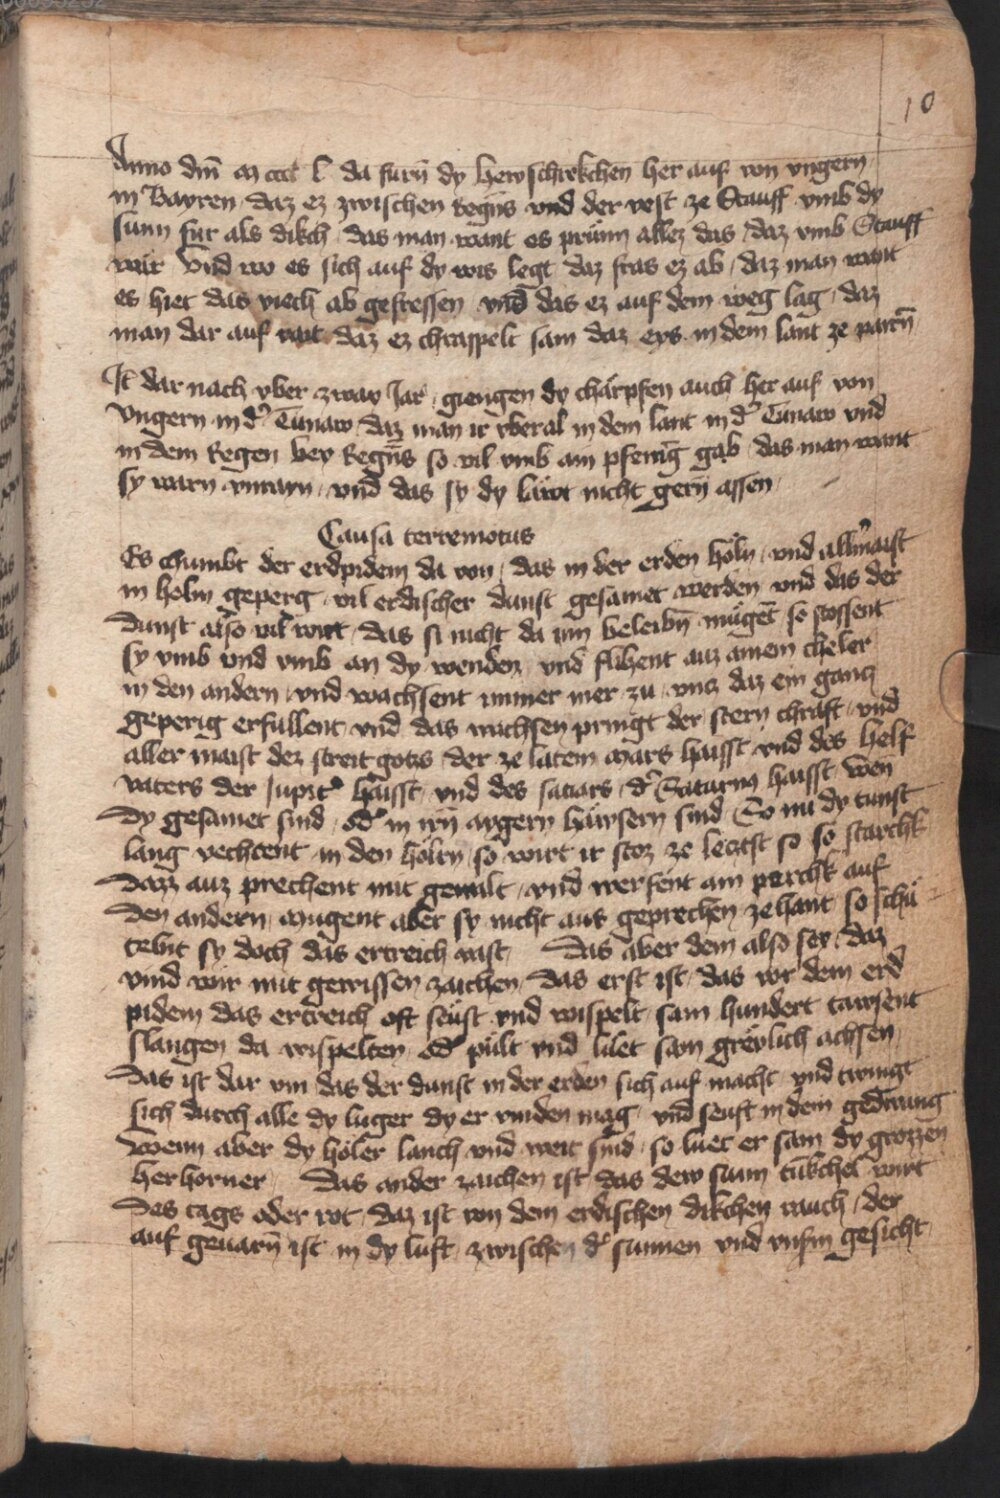 10
Anno dm̄ m ccc l da furn̄ dy hewschrekchen her auf von vngern
in Bayren daz ez zwischen regn̄s vnd der vest ze Stauff vmb dy
sunn fur als dikch das man want es prünn allez das daz vmb Stauff
wär Vnd wo es sich auf dy wis legt daz fras ez ab daz man want
es hiet das viech ab gefressen vnd das ez auf dem weg lag daz
man dar auf rait daz ez chraspelt sam daz eys in dem lant ze pairn̄
It̄ dar nach vber zway Jar giengen dy chärpfen auch her auf von
Vngern in dʼ Tunaw daz man ir vberal in dem lant in dʼ Tunaw vnd
in dem Regen bey Regn̄s so vil vmb ain pfenīg gab das man want
sy warn vnrayn vnd das sy dy läwt nicht gern̄ assen
Causa terremotus
Es chumbt der erdpidem da von das in der erden höln vnd allʼmaist
in holm geperg vil erdischer dunst gesamet werden vnd das der
dunst also vil wirt das si nicht da inn beleibn̄ mügēt so stossent
sy vmb vnd vmb an dy wenden vnd flihent auz ainem cheler
in den andern vnd wachsent immer mer zu vnz daz ein gancz
geperig erfullent vnd das wachsen pringt der stern chraft vnd
aller maist dez streit gotz der ze latein Mars haisst vnd des helf
vaters der Jupitʼ haisst vnd des satiars dʼ Saturnus haisst wen
dy gesamet sind odʼ in irn̄ aygern häwsern sind So nu dy tunst
lang vechtent in den holrn so wirt ir stoz ze leczst so so starchk
dazz auz prechent mit gewalt vnd werfent ain perchk auf
den andern mugent aber sy nicht aus geprechen ze hant so schü
telnt sy doch das ertreich vast Das aber dem also sey daz
vind wir mit gewissen zaichen Das erst ist das vor dem erd
pidem das ertreich oft seüst vnd wispelt sam hundert tawsent
slangen da wispelten odʼ pült vnd lüet sam greülich achsen
Das ist dar vm das der dunst in der erden sich auf macht vnd twingt
sich durch alle dy luger dy er vinden mag vnd seuft in dem gedrang
Wenn aber dy höler lanch vnd weit sind so luet er sam dy grozzen
herhorner Das ander zaichen ist das dew sunn tūkchel wirt
des tags oder rot daz ist von dem erdischen dikchen rauch der
auf geuarn̄ ist in dy luft zwischen dʼ sunnen vnd vnsm̄ gesicht